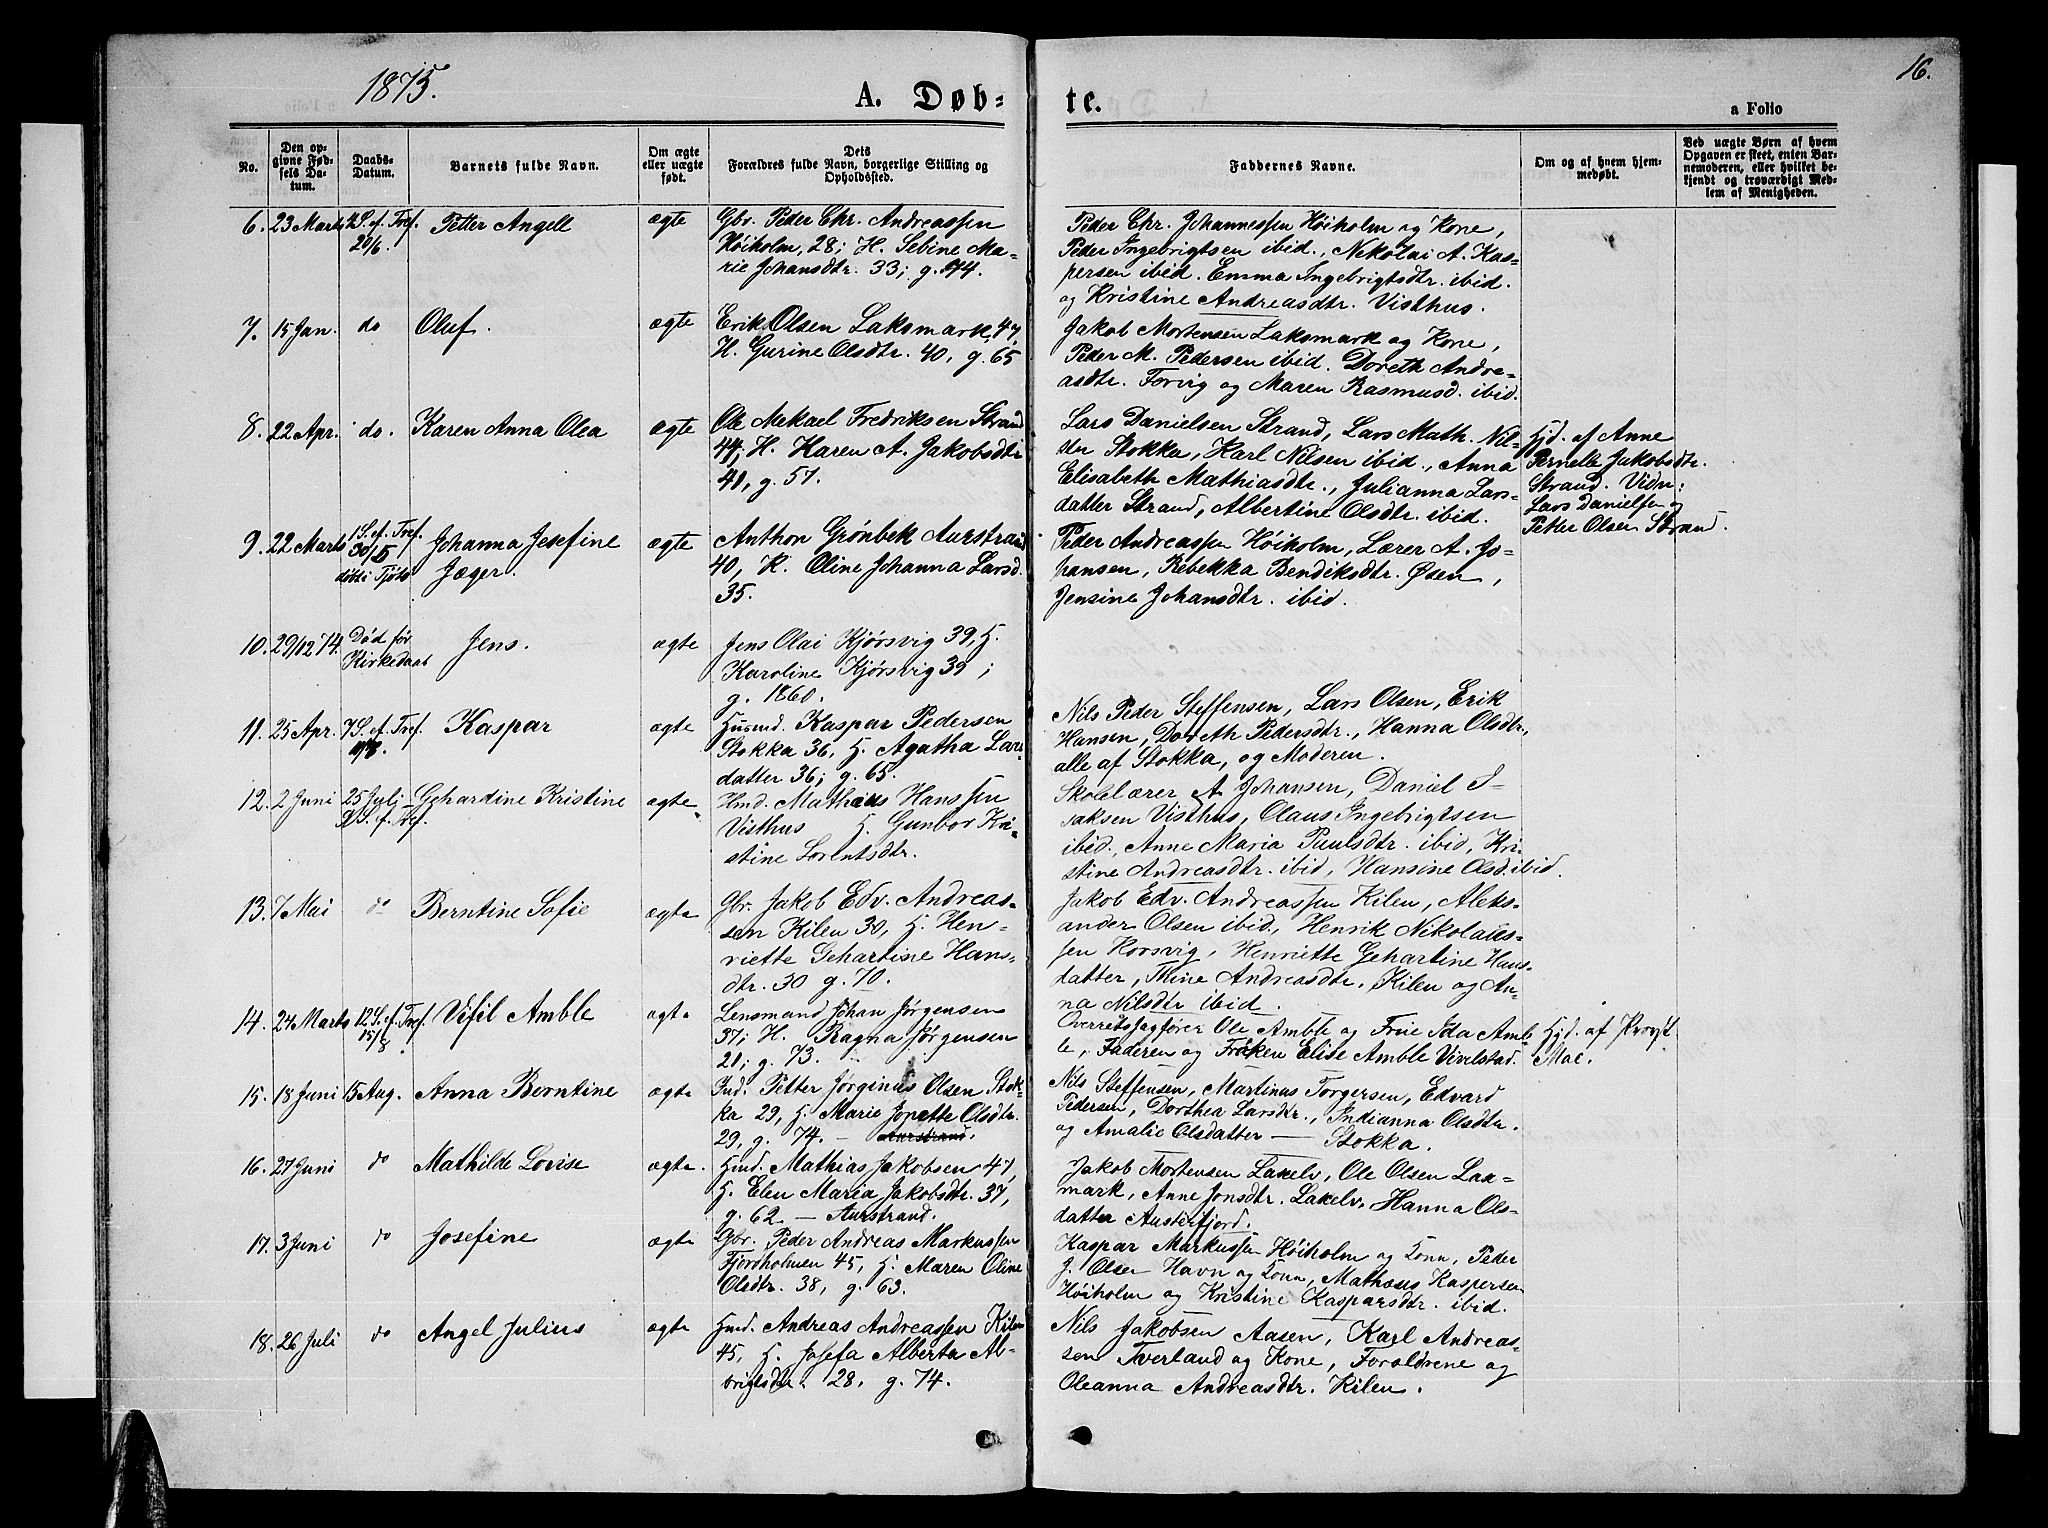 1875.
A. Døb=
te.
16.
a Folio
No.
Den op=
givne Fød=
sels Da=
tum.
Daabs=
Datum.
Barnets fulde Navn.
Om ægte
eller uægte
født.
Dets
Forældres fulde Navn, borgerlige Stilling og
Opholdssted.
Faddernes Navne.
Om og af hvem hjem=
medøbt.
Ved uægte Børn af hvem
Opgaven er skeet, enten Bar=
nemoderen, eller hvilket be=
kjendt og troværdigt Med=
lem af Menigheden.
6. 23 Marts 4 S. ef. Tref.
20/6.
Petter Angell
ægte
Gbr. Peder Chr. Andreassen
Høiholm, 28; H. Sebine Ma-
rie Johansdtr. 33; g. 74.
Peder Chr. Johannessen Høiholm og Kone,
Peder Ingebrigtsen ibid., Nikolai A. Kas-
persen ibid. Emma Ingebrigtsdtr. ibid.
og Kristine Andreasdtr. Visthus.
7. 15 Jan. do Oluf. ægte
Erik Olsen Laksmark, 47,
H. Gurine Olsdtr. 40, g. 65
Jakob Mortensen Laksmark og Kone,
Peder M. Pedersen ibid. Doreth Andre-
asdtr. Forvig og Maren Rasmusd. ibid.
8. 22 Apr. do. Karen Anna Olea ægte
Ole Mekael Fredriksen Strand
44; H. Karen A. Jakobsdtr
40, g. 57.
Lars Danielsen Strand, Lars Math. Nil-
sen Stokka, Karl Nilsen ibid., Anna
Elisabeth Mathiasdtr., Julianna Lars-
datter Strand, Albertine Olsdtr. ibid.
Hjd. af Anne
Pernelle Jakobsdtr.
Strand. Vidn:
Lars Danielsen og
Petter Olsen Strand.
9. 22 Marts 1 S. ef. Tref.
30/5
døbt i Tjøtø
Johanna Josefine
Jæger.
ægte
Anthon Grønbek Aurstrand
40, K. Oline Johanna Larsd.
35.
Peder Andreassen Høiholm, Lærer A. Jo-
hansen, Rebekka Bendiksdtr. Øsen,
Jensine Johansdtr. ibid.
10. 29/12 74. Død før
Kirkedaab
Jens.
ægte
Jens Olai Kjørsvig 39, H.
Karoline Kjørsvig 39;
g. 1860.
11. 25 Apr. 7 S. ef. Tref.
Kaspar
ægte
Husmd. Kaspar Pedersen
Stokka 36, H. Agatha Lars
datter 36; g. 65.
Nils Peder Steffensen, Lars Olsen, Erik
Hansen, Doreth Pedersdtr., Hanna Olsdtr.,
alle af Stokka, og Moderen.
12. 2 Juni 25 Juli
S. ef. Tref.
Gehardine Kristine
ægte
Hmd. Mathias Hanssen
Visthus H. Gunbor Kri-
stine Lorentsdtr.
Skolelærer A Johansen, Daniel I-
saksen Visthus, Olaus Ingebrigtsen
ibid., Anne Maria Paulsdtr. ibid, Kri-
stine Andreasdtr. ibid, Hansine Olsd. ibid.
13. 7 Mai do Berntine Sofie ægte
Gbr. Jakob Edv. Andreas-
sen Kilen 30, H. Hen-
riette Gehartine Hans-
dtr. 30 g. 70.
Jakob Edv. Andreassen Kilen, Aleks-
ander Olsen ibid., Henrik Nikolais-
sen Korsvig, Henriette Gehartine Hans-
datter, Thine Andreasdtr. Kilen og An-
na Nilsdtr ibid.
14. 24 Marts 12 S. ef. Tref.
15/8.
Vifil Amble
ægte
Lensmand Johan Jørgensen
37; H. Ragna Jørgensen
21; g. 73.
Overretssagfører Ole Amble og Frue Ida Amb-
le, Faderen og Frøken Elise Amble Vivelstad.
Hjd. af Provst
Moe.
15. 18 Juni 15 Aug. Anna Berntine ægte
Ind. Petter Jørginus Olsen Stok-
ka 29, H. Marie Jonette Olsdtr.
29, g. 74. — Aurstrand.
Nils Steffensen, Martinus Torgersen, Edvard
Pedersen, Dorthea Larsdtr., Indianna Olsdtr.
og Amalie Olsdatter — Stokka.
16. 27 Juni do Mathilde Lovise ægte.
Hmd. Mathias Jakobsen 47,
H. Elen Maria Jakobsdtr. 37,
g. 62. — Aurstrand.
Jakob Mortensen Lakelv, Ole Olsen Lax-
mark, Anne Jonsdtr. Lakelv, Hanna Ols-
datter Austerfjord.
17. 3 Juni do Josefine ægte
Gbr. Peder Andreas Markussen
Fjordholmen 45, H. Maren Oline
Olsdtr. 38, g. 63.
Kaspar Markussen Høiholm og Kone, Peder
J. Olsen Havn og Kone, Mathæus Kaspersen
Høiholm og Kristine Kasparsdtr. ibid.
18. 26 Juli do Angel Julius ægte
Hmd. Andreas Andreassen Kilen
45, H. Josefa Alberta Al-
brigtsdtr. 28, g. 74.
Nils Jakobsen Aasen, Karl Andreas-
sen Tverland og Kone, Forældrene og
Oleanna Andreasdtr. Kilen.